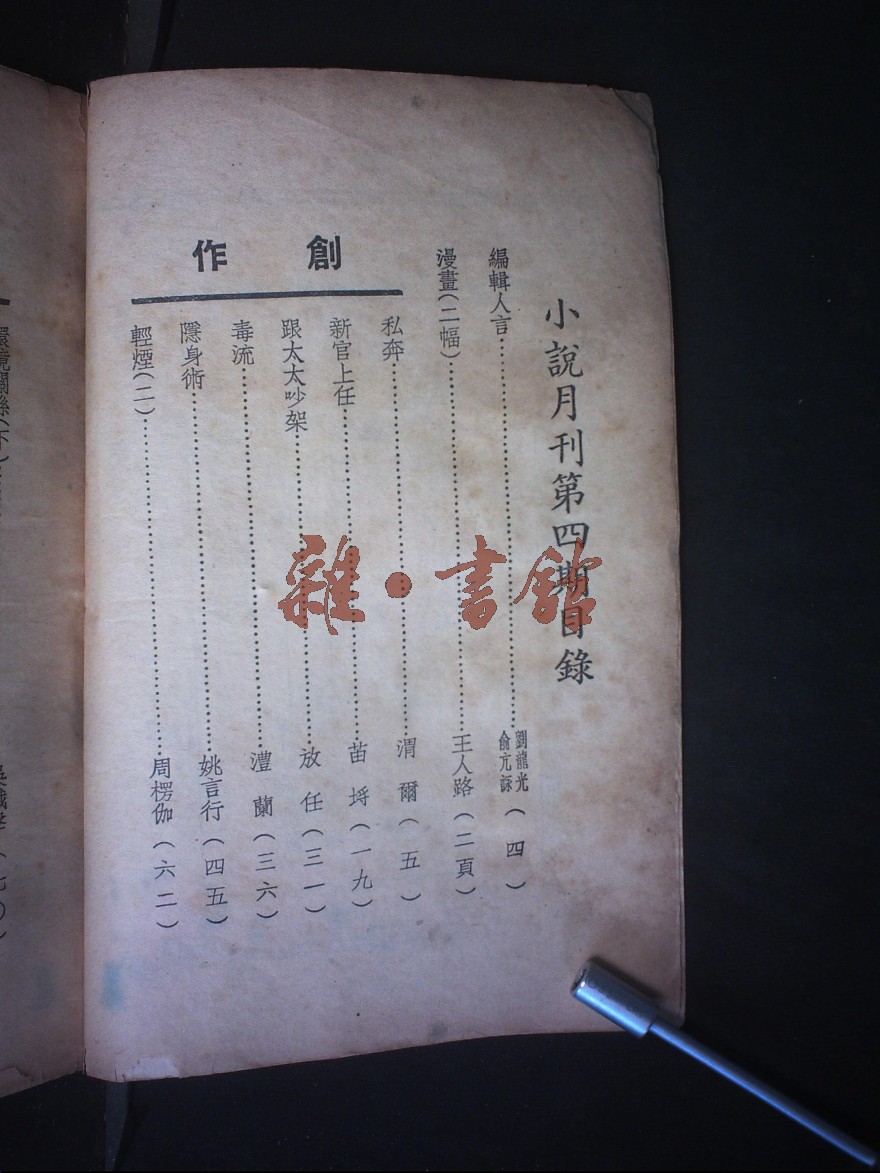 小說月刊第四期目錄
編輯人言……劉龍光 俞亢詠(四)
漫畫(二幅)……王人路(二頁)
創作
私奔……渭爾(五)
新官上任……苗埒(一九)
跟太太吵架……放任(三一)
毒流……澧蘭(三六)
隱身術……姚言行(四五)
輕煙(二)……周楞伽(六二)
環境關係(下)
雜·書館